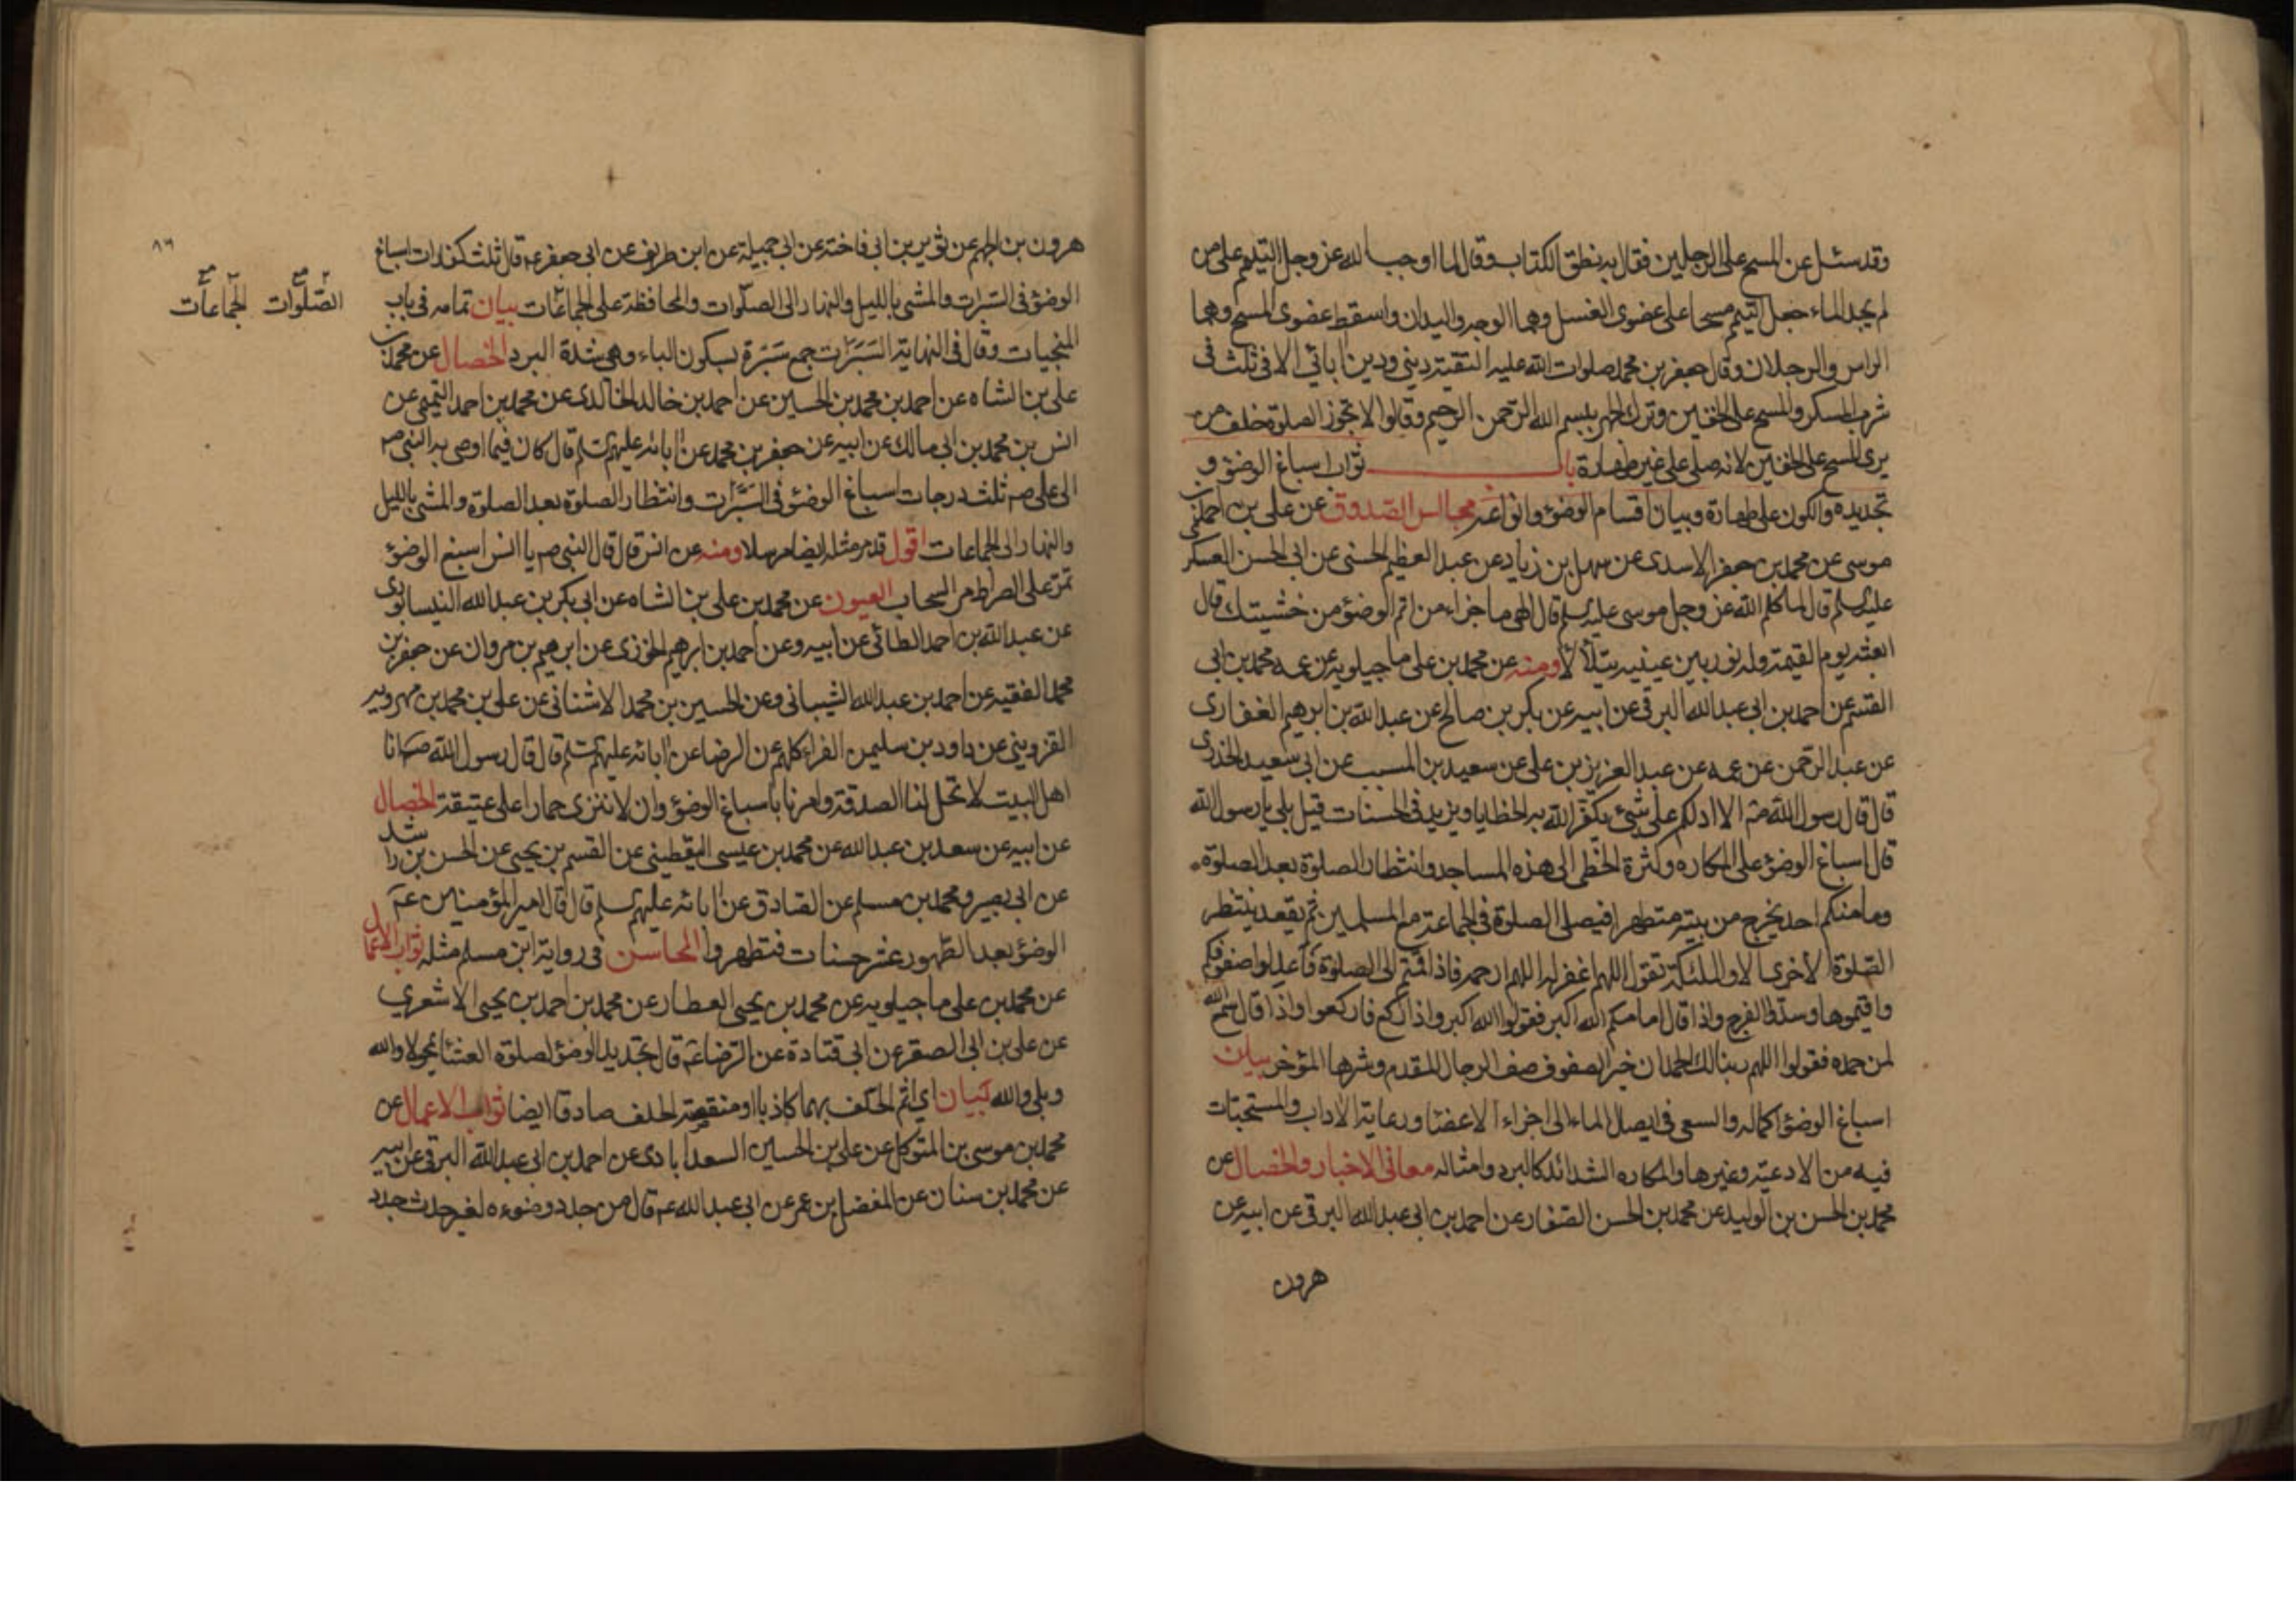 وقد سئل عن المسح على الرجلين فقال به نطق الكتاب وقال لما اوجب الله عز وجل التيمم على من
لم يجد الماء جعل التيمم مسحا على عضوى الغسل وهما الوجه واليدان واسقط عضوى المسح وهما
الراس والرجلان وقال جعفر بن محمد صلوات الله عليه التقية دينى ودين ابائى الا فى ثلث فى
شرب المسكر والمسح على الخفين وترك الجهر ببسم الله الرحمن الرحيم وقالوا لا تجوز الصلوة خلف من
يرى المسح على الخفين لانه صلى على غير طهارة باب ثواب اسباغ الوضوء و
تجديده والكون على طهارة وبيان اقسام الوضوء وانواعه مجالس الصدوق عن على بن احمد بن
موسى عن محمد بن جعفر الاسدى عن سهل بن زياد عن عبد العظيم الحسنى عن ابى الحسن العسكرى
عليه السلم قال لما كلم الله عز وجل موسى عليه السلم قال الهى ما جزاء من اتم الوضوء من خشيتك قال
ابعثه يوم القيمة وله نور بين عينيه يتلألأ ومنه عن محمد بن على ماجيلويه عن عمه محمد بن ابى
القسم عن احمد بن ابى عبد الله البرقى عن ابيه عن بكر بن صالح عن عبد الله بن ابرهيم الغفارى
عن عبد الرحمن عن عمه عن عبد العزيز بن على عن سعيد بن المسيب عن ابى سعيد الخدرى
قال قال رسول الله ص الا ادلكم على شئ يكفر الله به الخطايا ويزيد فى الحسنات قيل بلى يا رسول الله
قال اسباغ الوضوء على المكاره وكثرة الخطى الى هذه المساجد وانتظار الصلوة بعد الصلوة
وما منكم احد يخرج من بيته متطهرا فيصلى الصلوة فى الجماعة مع المسلمين ثم يقعد ينتظر
الصلوة الاخرى الا والملئكة تقول اللهم اغفر له اللهم ارحمه فاذا قمتم الى الصلوة فاعدلوا صفوفكم
واقيموها وسدوا الفرج واذا قال امامكم الله اكبر فقولوا الله اكبر واذا ركع فاركعوا واذا قال سمع الله
لمن حمده فقولوا اللهم ربنا لك الحمد ان خير الصفوف صف الرجال المقدم وشرها المؤخر بيان
اسباغ الوضوء اكماله والسعى فى ايصال الماء الى اجزاء الاعضا ورعاية الاداب والمستحبات
فيه من الادعية وغيرها والمكاره الشدائد كالبرد وامثاله معانى الاخبار والخصال عن
محمد بن الحسن بن الوليد عن محمد بن الحسن الصفار عن احمد بن ابى عبد الله البرقى عن ابيه عن
هرون
٨٦
هرون بن الجهم عن ثوير بن ابى فاخته عن ابى جميلة عن ابن طريف عن ابى جعفر ع قال ثلث كفارات اسباغ
الوضوء فى السبرات والمشى بالليل والنهار الى الصلوات والمحافظة على الجماعات بيان تمامه فى باب
الصلوات الجماعات
المنجيات وقال فى النهاية السبرات جمع سبرة بسكون الباء وهى شدة البرد الخصال عن محمد بن
على بن الشاه عن احمد بن محمد بن الحسين عن احمد بن خالد الخالدى عن محمد بن احمد التميمى عن
انس بن محمد بن ابى مالك عن ابيه عن جعفر بن محمد عن ابائه عليهم السلم قال كان فيما اوصى به النبى ص
الى على ص ثلث درجات اسباغ الوضوء فى السبرات وانتظار الصلوة بعد الصلوة والمشى بالليل
والنهار الى الجماعات اقول قد مر مثله ايضا مرسلا ومنه عن انس قال قال النبى ص يا انس اسبغ الوضوء
تمر على الصراط مر السحاب العيون عن محمد بن على بن الشاه عن ابى بكر بن عبد الله النيسابورى
عن عبد الله بن احمد الطائى عن ابيه وعن احمد بن ابرهيم الخوزى عن ابرهيم بن مروان عن جعفر بن
محمد الفقيه عن احمد بن عبد الله الشيبانى وعن الحسين بن محمد الاشنانى عن على بن محمد بن مهرويه
القزوينى عن داود بن سليمن الفراء كلهم عن الرضا عن ابائه عليهم السلم قال قال رسول الله ص انا
اهل البيت لا تحل لنا الصدقة وامرنا باسباغ الوضوء وان لا ننزى حمارا على عتيقة الخصال
عن ابيه عن سعد بن عبد الله عن محمد بن عيسى اليقطينى عن القسم بن يحيى عن الحسن بن راشد
عن ابى بصير ومحمد بن مسلم عن الصادق عن ابائه عليهم السلم قال قال امير المؤمنين ع
الوضوء بعد الطهور عشر حسنات فتطهروا المحاسن فى رواية ابن مسلم مثله ثواب الاعمال
عن محمد بن على ماجيلويه عن محمد بن يحيى العطار عن محمد بن احمد بن يحيى الاشعرى
عن على بن ابى الصقر عن ابى قتادة عن الرضا ع قال تجديد الوضوء لصلوة العشا يمحو لا والله
وبلى والله بيان اى اثم الحلف بهما كاذبا او منقصة الحلف صادقا ايضا ثواب الاعمال عن
محمد بن موسى بن المتوكل عن على بن الحسين السعدابادى عن احمد بن ابى عبد الله البرقى عن ابيه
عن محمد بن سنان عن المفضل بن عمر عن ابى عبد الله ع قال من جدد وضوءه لغير حدث جدد